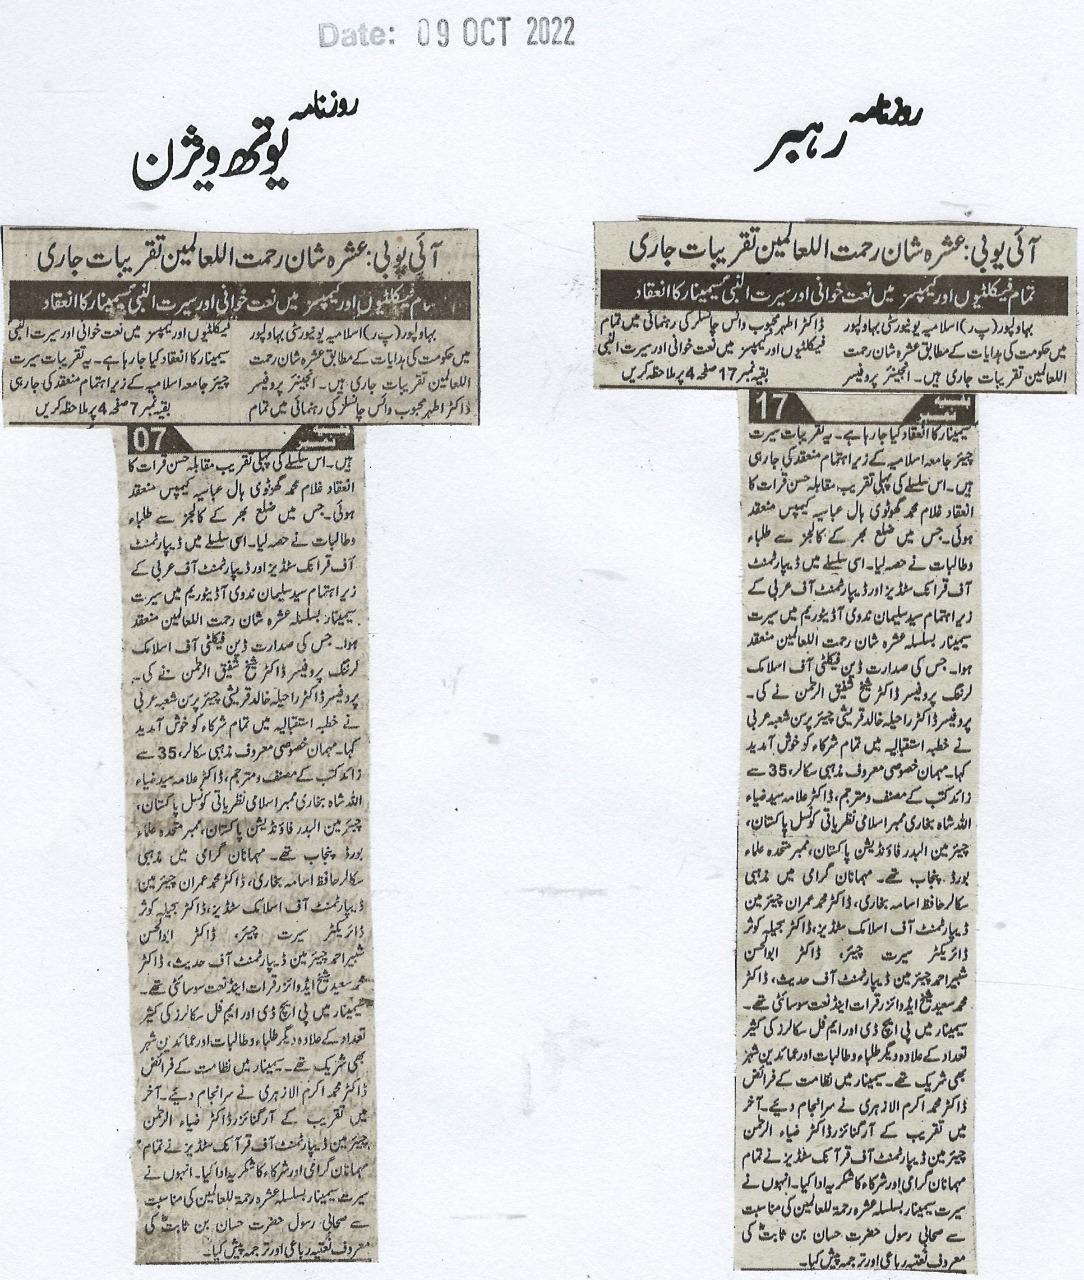 Date: 09 OCT 2022
روزنامہ
یوتھ ویژن
آئی یو بی: عشرہ شان رحمت اللعالمین تقریبات جاری
تمام فیکلٹیوں اور کیمپسز میں نعت خوانی اور سیرت النبیؐ سیمینار کا انعقاد
بہاولپور (پ ر) اسلامیہ یونیورسٹی بہاولپور
میں حکومت کی ہدایات کے مطابق عشرہ شان رحمت
اللعالمین تقریبات جاری ہیں۔ انجینئر پروفیسر
ڈاکٹر اطہر محبوب وائس چانسلر کی رہنمائی میں تمام
فیکلٹیوں اور کیمپسز میں نعت خوانی اور سیرت النبی
سیمینار کا انعقاد کیا جا رہا ہے۔ یہ تقریبات سیرت
چیئر جامعہ اسلامیہ کے زیر اہتمام منعقد کی جا رہی
بقیہ نمبر 7 صفحہ 4 پر ملاحظہ کریں
بقیہ نمبر 07
ہیں۔ اس سلسلے کی پہلی تقریب مقابلہ حسن قرات کا
انعقاد غلام محمد گھوٹوی ہال عباسیہ کیمپس منعقد
ہوئی۔ جس میں ضلع بھر کے کالجز سے طلباء
وطالبات نے حصہ لیا۔ اسی سلسلے میں ڈیپارٹمنٹ
آف قرآنک سٹڈیز اور ڈیپارٹمنٹ آف عربی کے
زیر اہتمام سید سلیمان ندوی آڈیٹوریم میں سیرت
سیمینار بسلسلہ عشرہ شان رحمت اللعالمین منعقد
ہوا۔ جس کی صدارت ڈین فیکلٹی آف اسلامک
لرننگ پروفیسر ڈاکٹر شیخ شفیق الرحمٰن نے کی۔
پروفیسر ڈاکٹر راحیلہ خالد قریشی چیئر پرسن شعبہ عربی
نے خطبہ استقبالیہ میں تمام شرکاء کو خوش آمدید
کہا۔ مہمان خصوصی معروف مذہبی سکالر، 35 سے
زائد کتب کے مصنف ومترجم، ڈاکٹر علامہ سید ضیاء
اللہ شاہ بخاری ممبر اسلامی نظریاتی کونسل پاکستان،
چیئرمین البدر فاؤنڈیشن پاکستان، ممبر متحدہ علماء
بورڈ پنجاب تھے۔ مہمانان گرامی میں مذہبی
سکالر حافظ اسامہ بخاری، ڈاکٹر محمد عمران چیئرمین
ڈیپارٹمنٹ آف اسلامک سٹڈیز، ڈاکٹر جمیلہ کوثر
ڈائریکٹر سیرت چیئر، ڈاکٹر ابوالحسن
شبیر احمد چیئرمین ڈیپارٹمنٹ آف حدیث، ڈاکٹر
محمد سعید شیخ ایڈوائزر قرات اینڈ نعت سوسائٹی تھے۔
سیمینار میں پی ایچ ڈی اور ایم فل سکالرز کی کثیر
تعداد کے علاوہ دیگر طلباء وطالبات اور عمائدین شہر
بھی شریک تھے۔ سیمینار میں نظامت کے فرائض
ڈاکٹر محمد اکرم الازہری نے سرانجام دیئے۔ آخر
میں تقریب کے آرگنائزر ڈاکٹر ضیاء الرحمٰن
چیئرمین ڈیپارٹمنٹ آف قرآنک سٹڈیز نے تمام
مہمانان گرامی اور شرکاء کا شکریہ ادا کیا۔ انہوں نے
سیرت سیمینار بسلسلہ عشرہ رحمۃ للعالمین کی مناسبت
سے صحابی رسول حضرت حسان بن ثابتؓ کی
معروف نعتیہ رباعی اور ترجمہ پیش کیا۔
روزنامہ
رہبر
آئی یو بی: عشرہ شان رحمت اللعالمین تقریبات جاری
تمام فیکلٹیوں اور کیمپسز میں نعت خوانی اور سیرت النبیؐ سیمینار کا انعقاد
بہاولپور (پ ر) اسلامیہ یونیورسٹی بہاولپور
میں حکومت کی ہدایات کے مطابق عشرہ شان رحمت
اللعالمین تقریبات جاری ہیں۔ انجینئر پروفیسر
ڈاکٹر اطہر محبوب وائس چانسلر کی رہنمائی میں تمام
فیکلٹیوں اور کیمپسز میں نعت خوانی اور سیرت النبی
بقیہ نمبر 17 صفحہ 4 پر ملاحظہ کریں
بقیہ نمبر 17
سیمینار کا انعقاد کیا جا رہا ہے۔ یہ تقریبات سیرت
چیئر جامعہ اسلامیہ کے زیر اہتمام منعقد کی جا رہی
ہیں۔ اس سلسلے کی پہلی تقریب مقابلہ حسن قرات کا
انعقاد غلام محمد گھوٹوی ہال عباسیہ کیمپس منعقد
ہوئی۔ جس میں ضلع بھر کے کالجز سے طلباء
وطالبات نے حصہ لیا۔ اسی سلسلے میں ڈیپارٹمنٹ
آف قرآنک سٹڈیز اور ڈیپارٹمنٹ آف عربی کے
زیر اہتمام سید سلیمان ندوی آڈیٹوریم میں سیرت
سیمینار بسلسلہ عشرہ شان رحمت اللعالمین منعقد
ہوا۔ جس کی صدارت ڈین فیکلٹی آف اسلامک
لرننگ پروفیسر ڈاکٹر شیخ شفیق الرحمٰن نے کی۔
پروفیسر ڈاکٹر راحیلہ خالد قریشی چیئر پرسن شعبہ عربی
نے خطبہ استقبالیہ میں تمام شرکاء کو خوش آمدید
کہا۔ مہمان خصوصی معروف مذہبی سکالر، 35 سے
زائد کتب کے مصنف ومترجم، ڈاکٹر علامہ سید ضیاء
اللہ شاہ بخاری ممبر اسلامی نظریاتی کونسل پاکستان،
چیئرمین البدر فاؤنڈیشن پاکستان، ممبر متحدہ علماء
بورڈ پنجاب تھے۔ مہمانان گرامی میں مذہبی
سکالر حافظ اسامہ بخاری، ڈاکٹر محمد عمران چیئرمین
ڈیپارٹمنٹ آف اسلامک سٹڈیز، ڈاکٹر جمیلہ کوثر
ڈائریکٹر سیرت چیئر، ڈاکٹر ابوالحسن
شبیر احمد چیئرمین ڈیپارٹمنٹ آف حدیث، ڈاکٹر
محمد سعید شیخ ایڈوائزر قرات اینڈ نعت سوسائٹی تھے۔
سیمینار میں پی ایچ ڈی اور ایم فل سکالرز کی کثیر
تعداد کے علاوہ دیگر طلباء وطالبات اور عمائدین شہر
بھی شریک تھے۔ سیمینار میں نظامت کے فرائض
ڈاکٹر محمد اکرم الازہری نے سرانجام دیئے۔ آخر
میں تقریب کے آرگنائزر ڈاکٹر ضیاء الرحمٰن
چیئرمین ڈیپارٹمنٹ آف قرآنک سٹڈیز نے تمام
مہمانان گرامی اور شرکاء کا شکریہ ادا کیا۔ انہوں نے
سیرت سیمینار بسلسلہ عشرہ رحمۃ للعالمین کی مناسبت
سے صحابی رسول حضرت حسان بن ثابتؓ کی
معروف نعتیہ رباعی اور ترجمہ پیش کیا۔